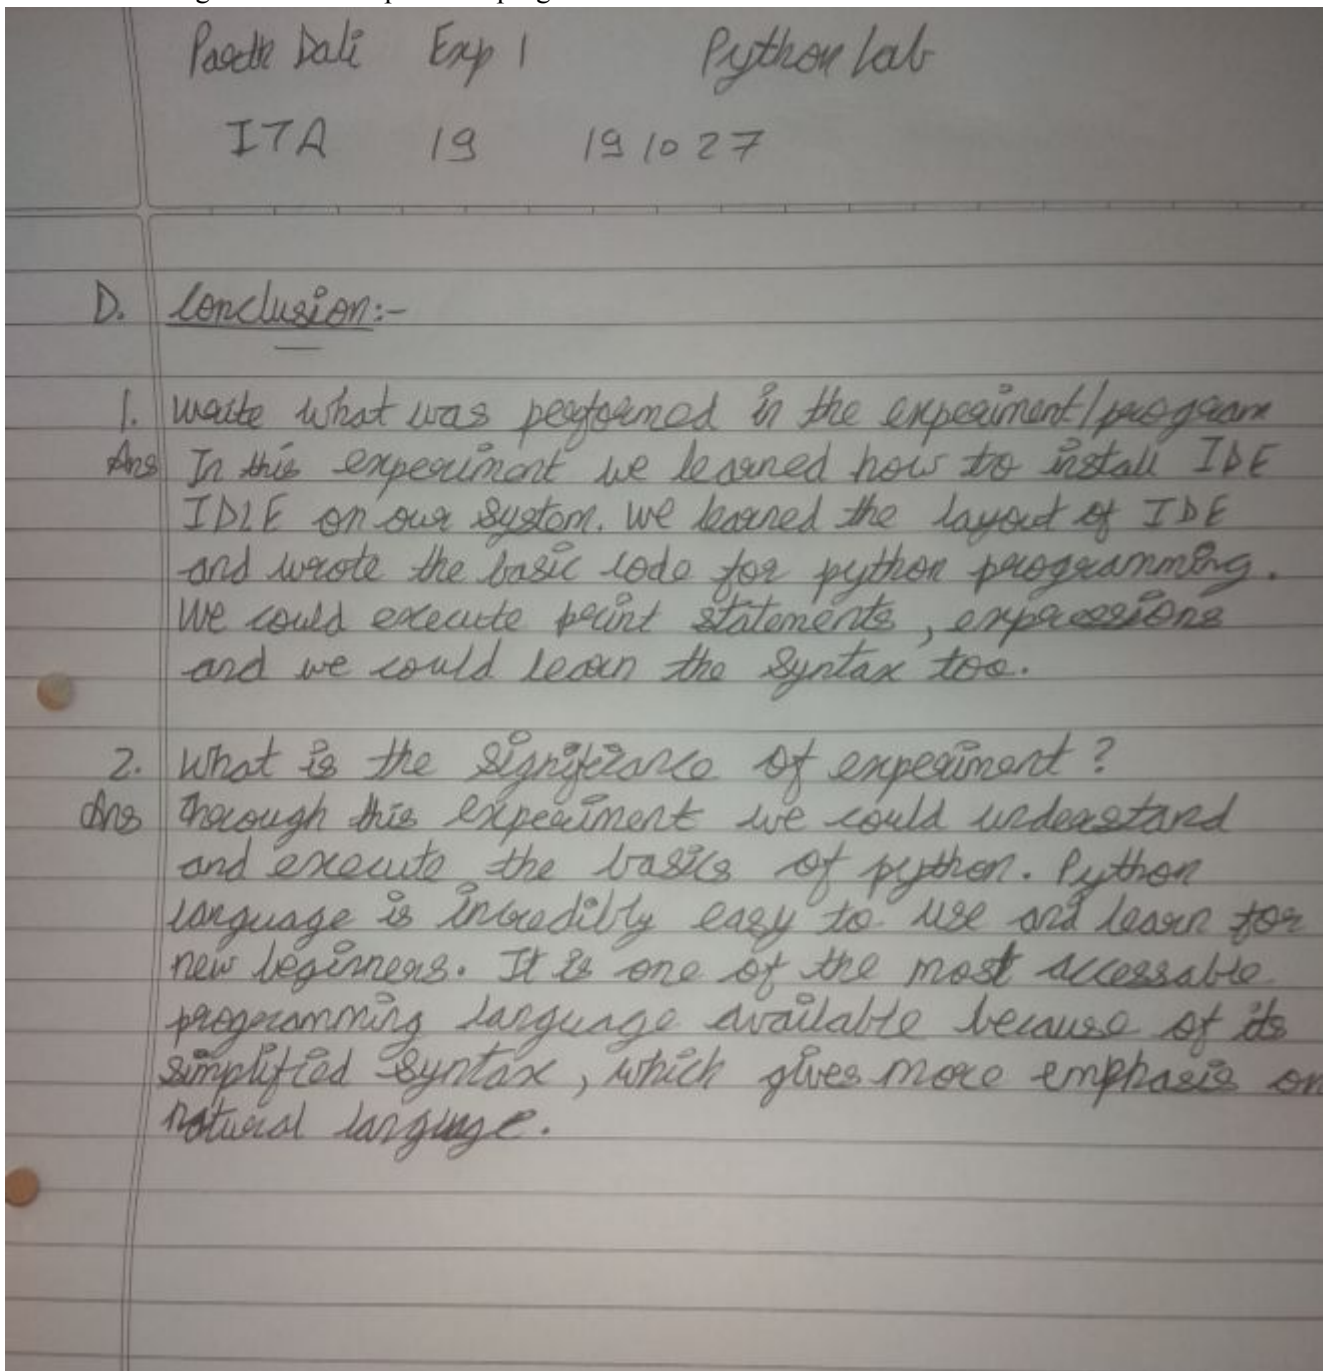 Parth Dali Exp 1 Python Lab
ITA 19 191027
D. Conclusion:-
1. Write what was performed in the experiment/program
Ans In this experiment we learned how to install IDE
IDLE on our system. We learned the layout of IDE
and wrote the basic code for python programming.
We could execute print statements, expressions
and we could learn the syntax too.
2. What is the significance of experiment?
Ans Through this experiment we could understand
and execute the basics of python. Python
language is incredibly easy to use and learn for
new beginners. It is one of the most accessable
programming language available because of its
simplified syntax, which gives more emphasis on
natural language.